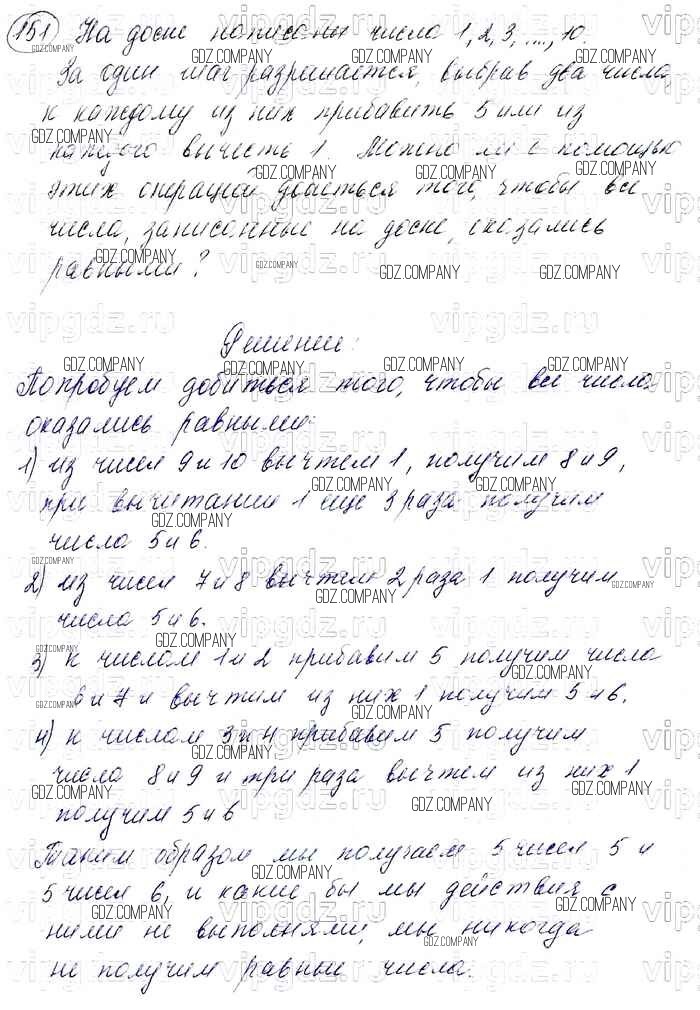 151 На доске написаны числа 1, 2, 3, ..., 10.
За один шаг разрешается, выбрав два числа,
к каждому из них прибавить 5 или из
каждого вычесть 1. Можно ли с помощью
этих операций добиться того, чтобы все
числа, записанные на доске, оказались
равными?
Решение:
Попробуем добиться того, чтобы все числа
оказались равными:
1) из чисел 9 и 10 вычтем 1, получим 8 и 9,
при вычитании 1 еще 3 раза получим
числа 5 и 6.
2) из чисел 7 и 8 вычтем 2 раза 1 получим
числа 5 и 6.
3) к числам 1 и 2 прибавим 5 получим числа
6 и 7 и вычтим из них 1 получим 5 и 6.
4) к числам 3 и 4 прибавим 5 получим
числа 8 и 9 и три раза вычтем из них 1
получим 5 и 6
Таким образом мы получаем 5 чисел 5 и
5 чисел 6, и какие бы мы действия с
ними не выполняли, мы никогда
не получим равные числа.
GDZ.COMPANY
vipgdz.ru